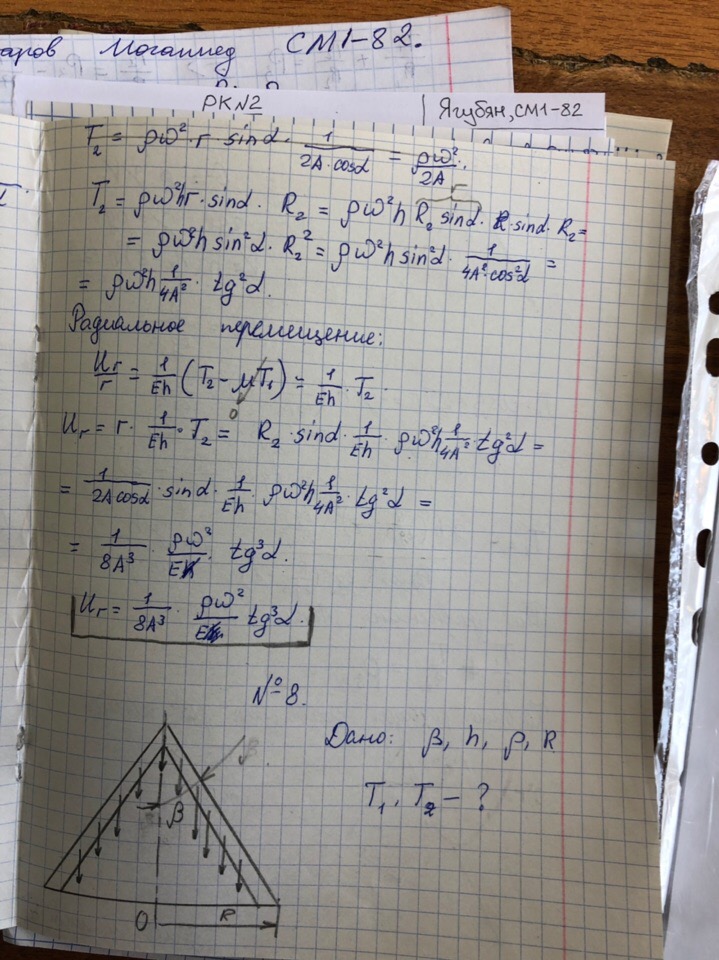 аров Могаммед СМ1-82.
РК№2
Ягубян, СМ1-82
T₂ = ρω²·r·sinα·1/(2A·cosα) = ρω²/2A.
r
T₂ = ρω²hr·sinα·R₂ = ρω²h R₂ sinα·sinα·R₂ =
= ρω²h sin²α·R₂² = ρω²h sin²α·1/(4A²·cos²α) =
= ρω²h 1/4A²·tg²α.
Радиальное перемещение:
Ur/r = 1/Eh (T₂ - μT₁) = 1/Eh·T₂.
0
Ur = r·1/Eh·T₂ = R₂·sinα·1/Eh·ρω²h 1/4A²·tg²α =
= 1/(2A cosα)·sinα·1/Eh·ρω²h 1/4A²·tg²α =
= 1/8A³·ρω²/E·tg³α.
Ur = 1/8A³·ρω²/E tg³α.
№8.
Дано: β, h, ρ, R
T₁, T₂ - ?
β
O
R